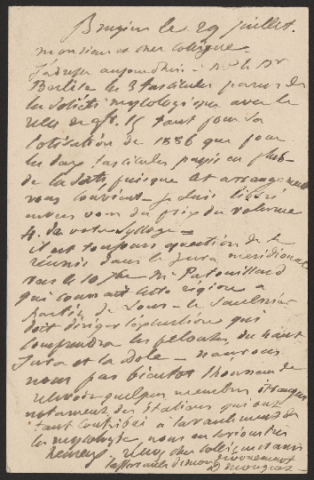 Bruyères le 29 juillet.
Monsieur et cher collègue.
J'adresse aujourd'hui à Mr le Dr
Berlese les 3 fascicules parus de
la Société mycologique avec le
reçu de 15 tant pour la
cotisation de 1886 que pour
les deux fascicules parus en plus
de la date, puisque cet arrangement
vous convient. Je suis libéré
envers vous du prix du volume
4 de votre Sylloge.
il est toujours question de se
réunir dans le Jura méridional
vers le 10 7bre Mr Patouillard
qui connait cette région a
de Lons-le-Saulnier
doit diriger l'expédition qui
comprendra les pelouses du haut
Jura et la Dole. naurons
nous pas bientôt l'honneur de
recevoir quelques membres étrangers
notamment des Italiens qui ont
tant contribué à l'avancement de
la mycologie, nous en serions très
heureux. Veuillez cher collègue et ami
l'assurance de mon dévouement
A. Mougeot